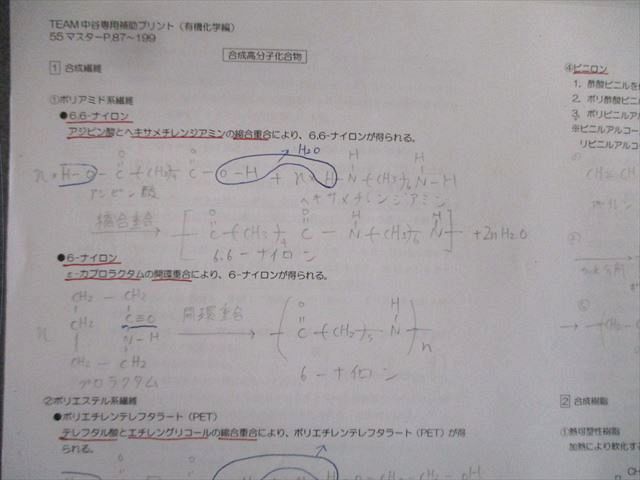 TEAM中谷専用補助プリント（有機化学編）
55マスターP.87～199
合成高分子化合物
1 合成繊維
①ポリアミド系繊維
●6,6-ナイロン
アジピン酸とヘキサメチレンジアミンの縮合重合により、6,6-ナイロンが得られる。
H2O
アジピン酸
ヘキサメチレンジアミン
縮合重合
+2nH2O
6.6-ナイロン
●6-ナイロン
ε-カプロラクタムの開環重合により、6-ナイロンが得られる。
CH2 - CH2
CH2 C=O
n
開環重合
CH2 N-H
CH2 - CH2
n
6-ナイロン
②ポリエステル系繊維
●ポリエチレンテレフタラート（PET）
テレフタル酸とエチレングリコールの縮合重合により、ポリエチレンテレフタラート（PET）が得
られる。
④ビニロン
1. 酢酸ビニルを
2. ポリ酢酸ビニ
3. ポリビニルア
※ビニルアルコー
リビニルアルコー
2 合成樹脂
①熱可塑性樹脂
加熱により軟化す